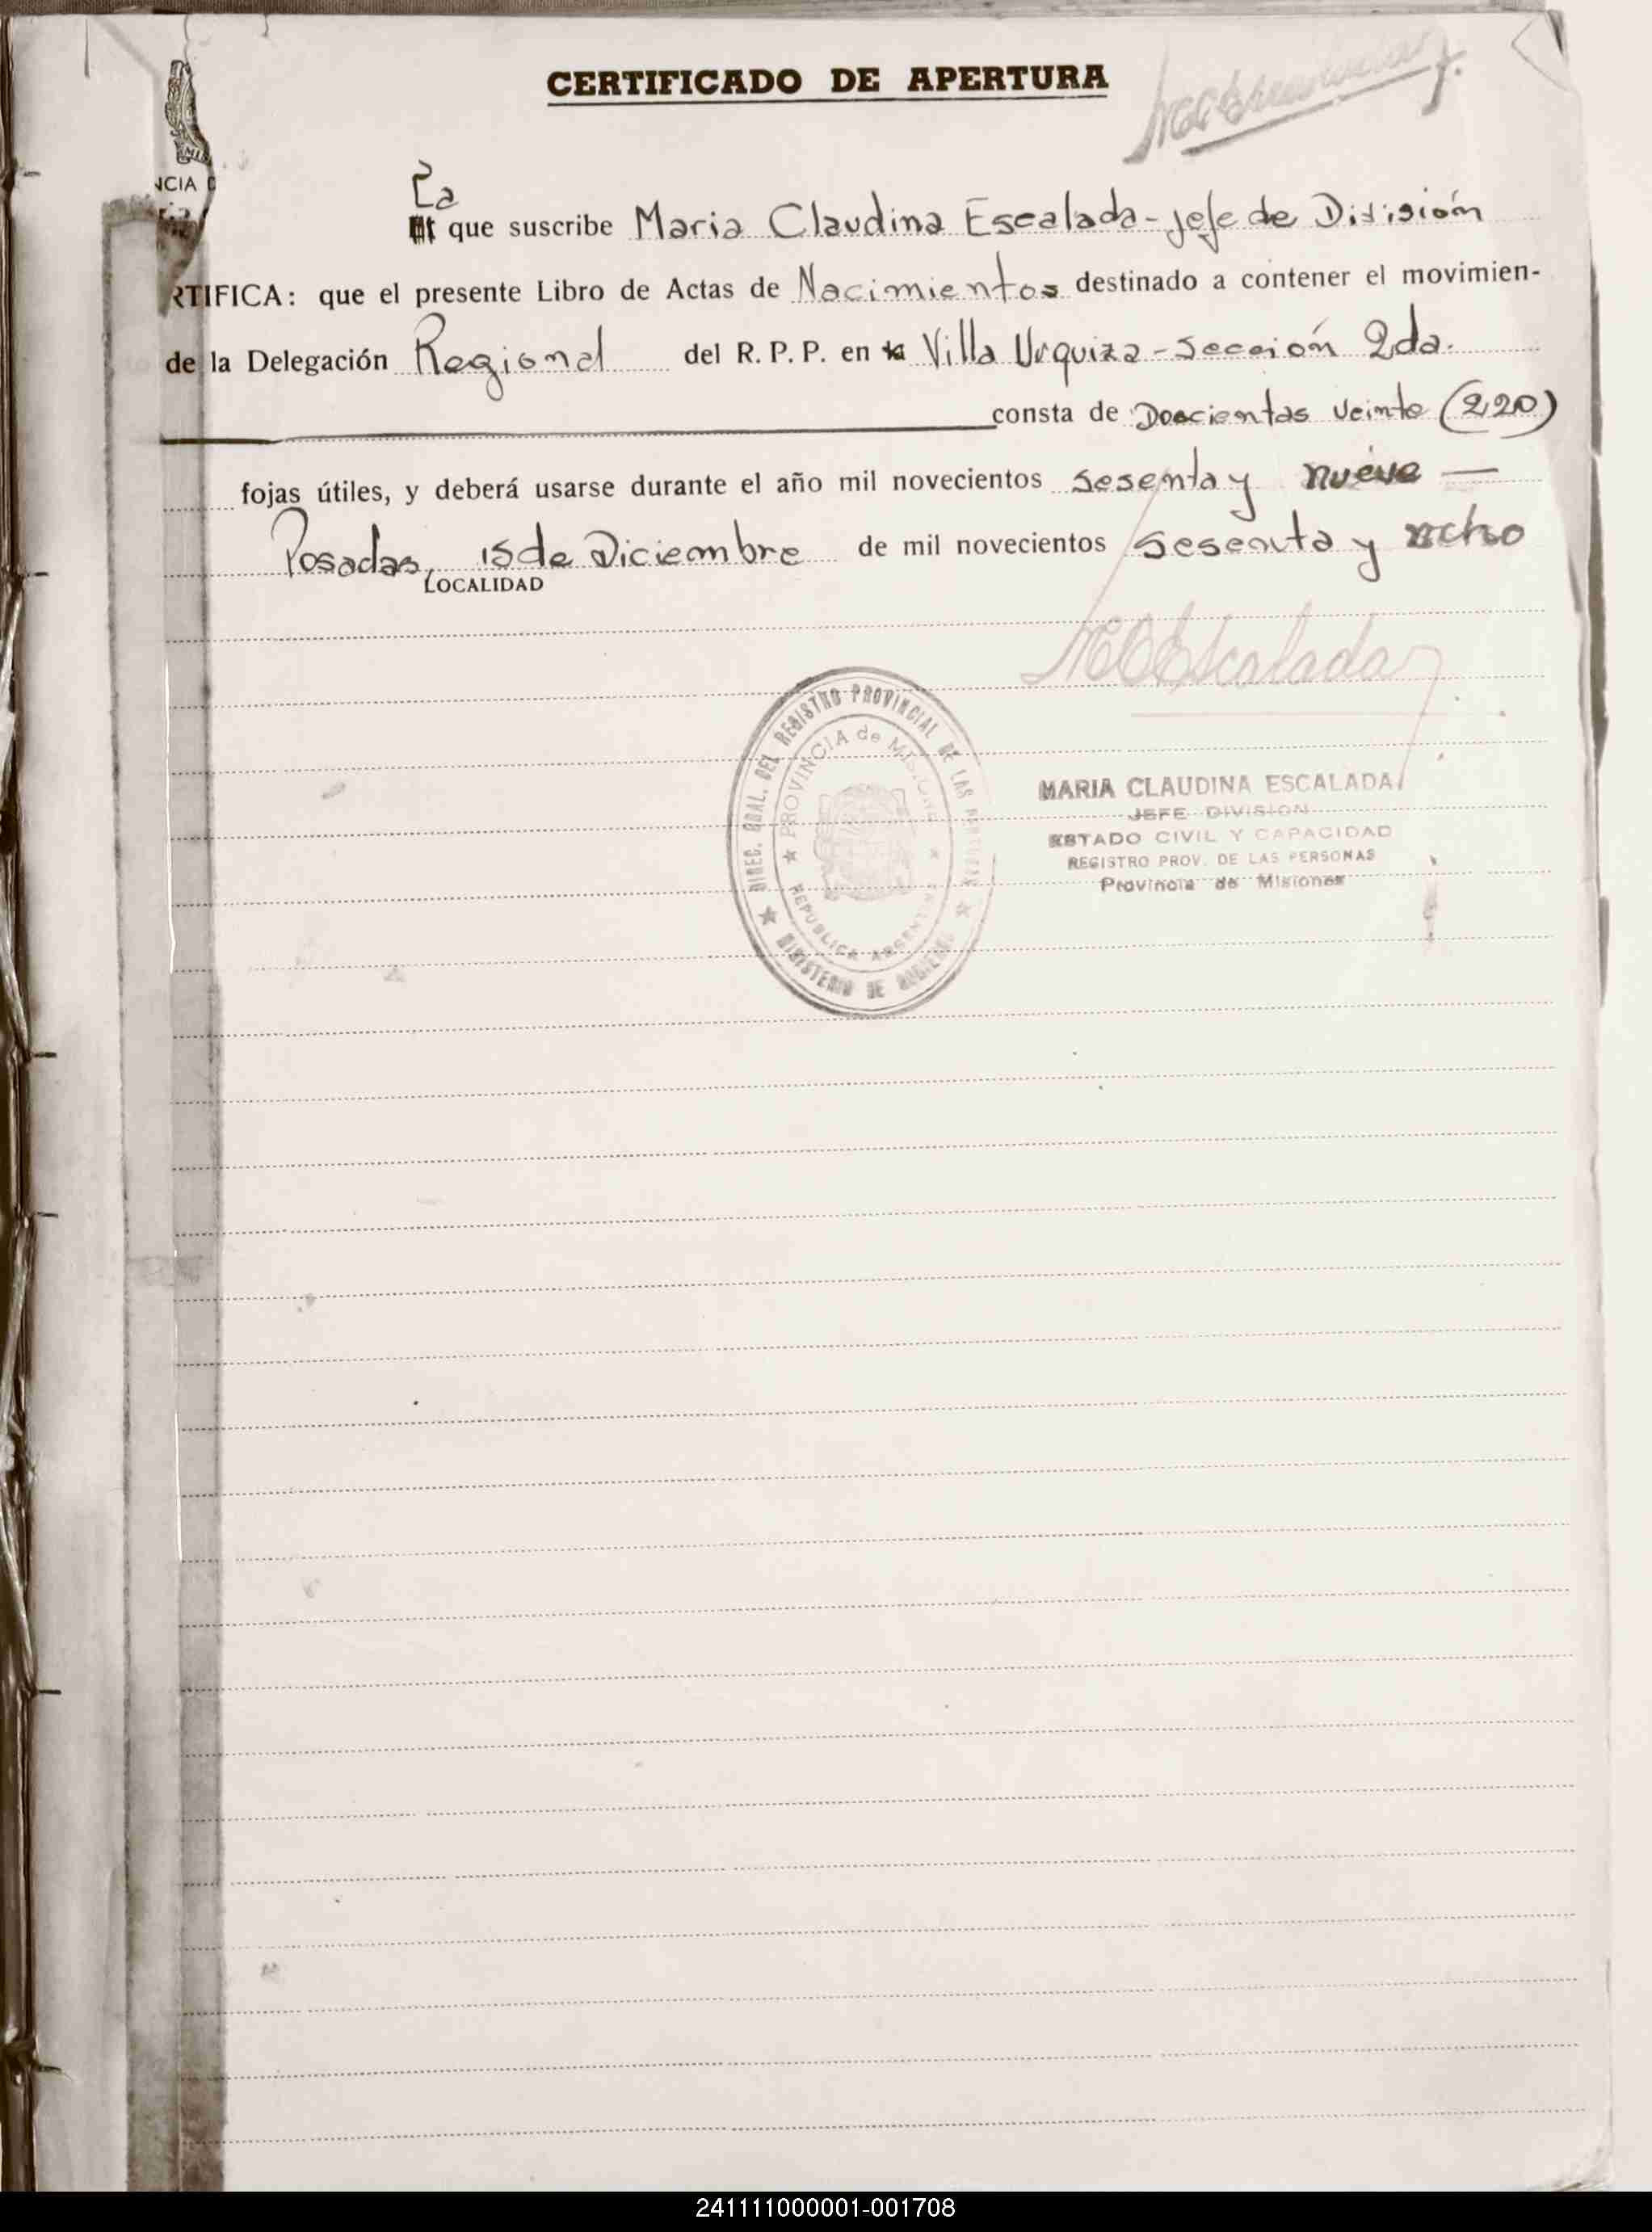 CERTIFICADO DE APERTURA
NCIA D
La
que suscribe Maria Claudina Escalada - Jefe de División
RTIFICA: que el presente Libro de Actas de Nacimientos destinado a contener el movimien-
de la Delegación Regional del R. P. P. en Villa Urquiza - Sección 2da.
consta de Doscientas veinte (220)
fojas útiles, y deberá usarse durante el año mil novecientos sesenta y nueve —
Posadas, 15 de Diciembre de mil novecientos sesenta y ocho
LOCALIDAD
MCEscalada
DIREC. GRAL. DEL REGISTRO PROVINCIAL DE LAS PERSONAS
PROVINCIA de MISIONES
REPUBLICA ARGENTINA
MINISTERIO DE GOBIERNO
MARIA CLAUDINA ESCALADA
JEFE DIVISION
ESTADO CIVIL Y CAPACIDAD
REGISTRO PROV. DE LAS PERSONAS
Provincia de Misiones
241111000001-001708